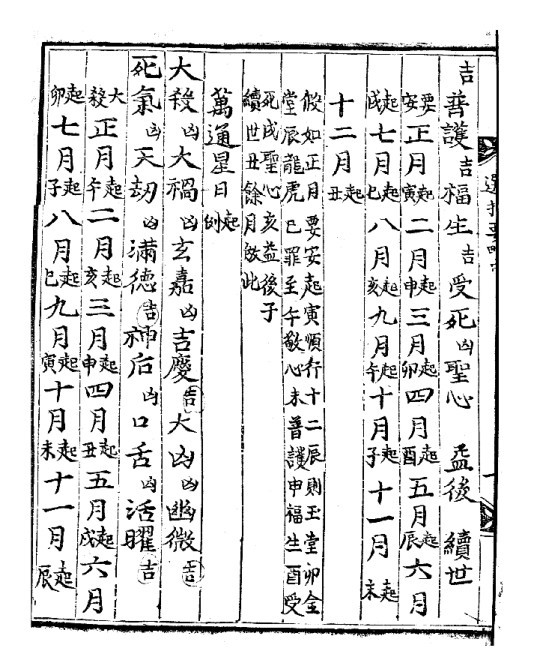 吉普護吉福生吉受死凶聖心 益後 續世
要安正月起寅二月起申三月起卯四月起酉五月起辰六月
起戌七月起巳八月起亥九月起午十月起子十一月起未
十二月起丑
假如正月要安起寅順行十二辰則玉堂卯金
堂辰龍虎巳罪至午敬心未普護申福生酉受
死戌聖心亥益後子
續世丑餘月倣此
萬通星日起例
大殺凶大禍凶玄嘉凶吉慶吉大凶凶幽微吉
死氣凶天劫凶滿德吉神后凶口舌凶活曜吉
大殺正月起午二月起亥三月起申四月起丑五月起戌六月
起卯七月起子八月起巳九月起寅十月起未十一月起辰